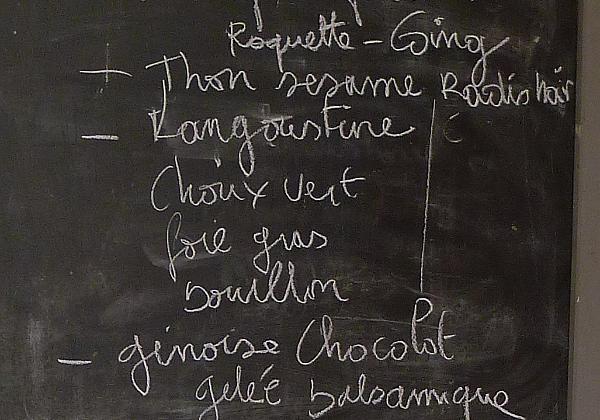 Roquette - Ging
+ Thon sesame Radis noir
- Langoustine
Choux vert
foie gras
bouillon
- génoise Chocolat
gelée balsamique